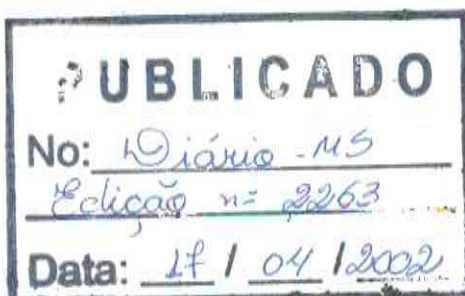 PUBLICADO
No: Diário-MS
Edição nº 2263
Data: 17 / 04 / 2002